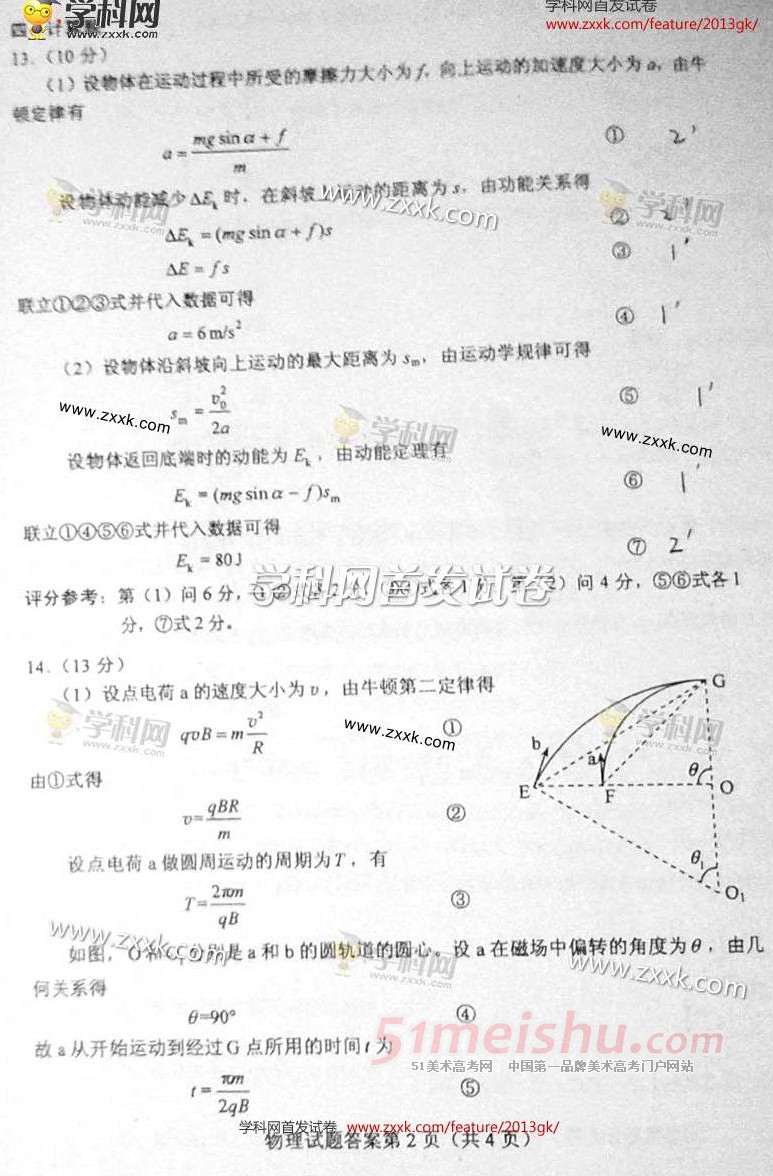 学科网
学科网首发试卷
www.zxxk.com/feature/2013gk/
四 计
13.（10分）
（1）设物体在运动过程中所受的摩擦力大小为f, 向上运动的加速度大小为a，由牛
顿定律有
a = (mg sin α + f)/m ① 2′
设物体动能减少ΔEk时，在斜坡上运动的距离为s，由功能关系得
ΔEk = (mg sin α + f)s ②
ΔE = fs ③ 1′
联立①②③式并代入数据可得
a = 6 m/s² ④ 1′
（2）设物体沿斜坡向上运动的最大距离为sm，由运动学规律可得
sm = v0²/2a ⑤ 1′
设物体返回底端时的动能为Ek，由动能定理有
Ek = (mg sin α − f)sm ⑥ 1′
联立①④⑤⑥式并代入数据可得
Ek = 80 J ⑦ 2′
学科网首发试卷
评分参考：第（1）问6分，式各1分 第（2）问4分，⑤⑥式各1
分，⑦式2分。
14.（13分）
（1）设点电荷a的速度大小为v，由牛顿第二定律得
qvB = m v²/R ①
由①式得
v = qBR/m ②
设点电荷a做圆周运动的周期为T，有
T = 2πm/qB ③
如图，O和O1分别是a和b的圆轨道的圆心。设a在磁场中偏转的角度为θ，由几
何关系得
θ=90° ④
故a从开始运动到经过G点所用的时间t为
t = πm/2qB ⑤
G
b
a
θ
E
F
O
θ1
O1
学科网
www.zxxk.com
学科网
www.zxxk.com
学科网
www.zxxk.com
学科网
www.zxxk.com
学科网
www.zxxk.com
学科网
www.zxxk.com
51meishu.com
51美术高考网 中国第一品牌美术高考门户网站
学科网首发试卷 www.zxxk.com/feature/2013gk/
物理试题答案第2页（共4页）